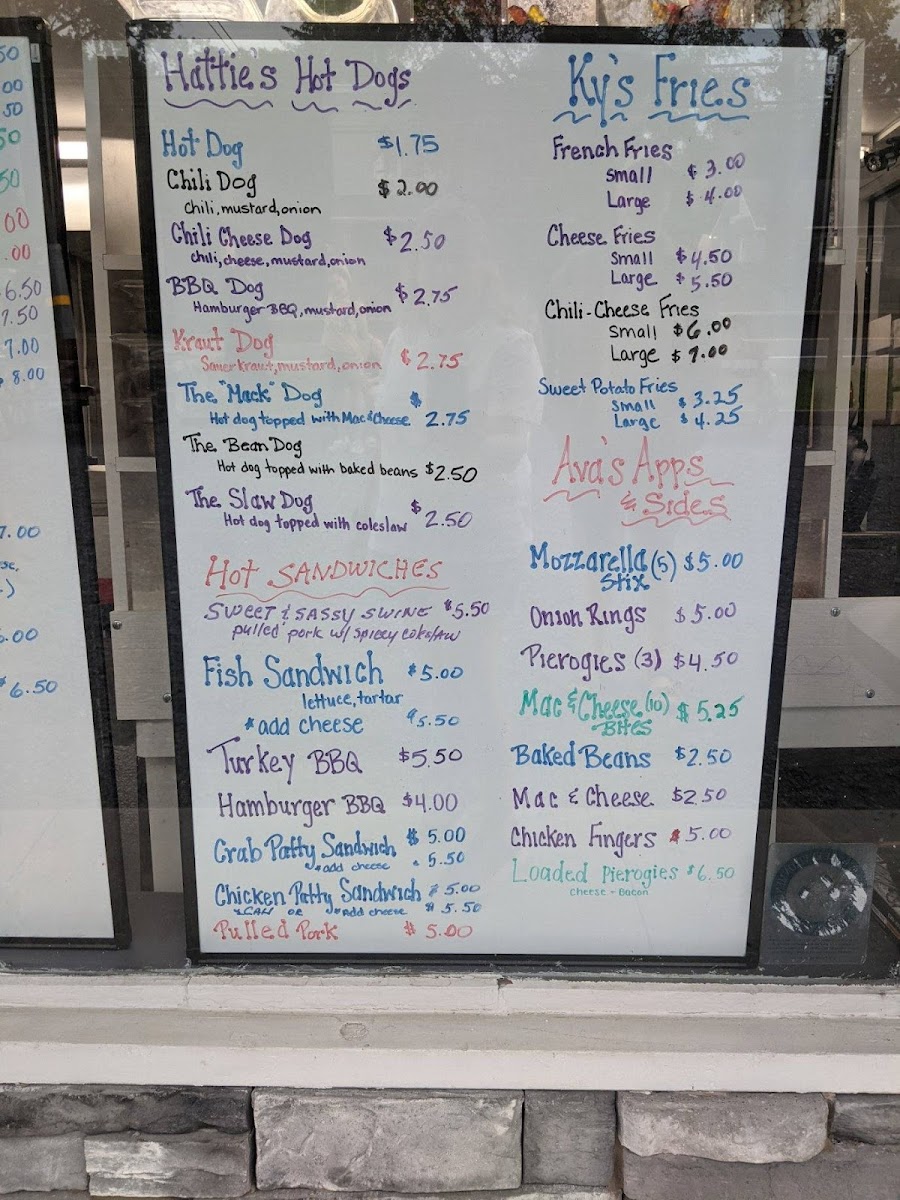 50
00
50
50
50
00
.00
6.50
7.50
7.00
8.00
7.00
.)
6.00
6.50
Hattie's Hot Dogs
Hot Dog $1.75
Chili Dog $2.00
chili, mustard, onion
Chili Cheese Dog $2.50
chili, cheese, mustard, onion
BBQ Dog $2.75
Hamburger BBQ, mustard, onion
Kraut Dog
Sauerkraut, mustard, onion $2.75
The "Mack" Dog $
Hot dog topped with Mac & Cheese 2.75
The Bean Dog
Hot dog topped with baked beans $2.50
The Slaw Dog $
Hot dog topped with coleslaw 2.50
Hot SANDWICHES
SWEET & SASSY SWINE $5.50
pulled pork w/ spicey coleslaw
Fish Sandwich $5.00
lettuce, tartar
*add cheese $5.50
Turkey BBQ $5.50
Hamburger BBQ $4.00
Crab Patty Sandwich $5.00
*add cheese 5.50
Chicken Patty Sandwich $5.00
OR *add cheese $5.50
Pulled Pork $5.00
Ky's Fries
French Fries
Small $3.00
Large $4.00
Cheese Fries
Small $4.50
Large $5.50
Chili-Cheese Fries
Small $6.00
Large $7.00
Sweet Potato Fries
Small $3.25
Large $4.25
Ava's Apps
& Sides
Mozzarella (5) $5.00
Stix
Onion Rings $5.00
Pierogies (3) $4.50
Mac & Cheese (10) $5.25
Bites
Baked Beans $2.50
Mac & Cheese $2.50
Chicken Fingers $5.00
Loaded Pierogies $6.50
Cheese - Bacon